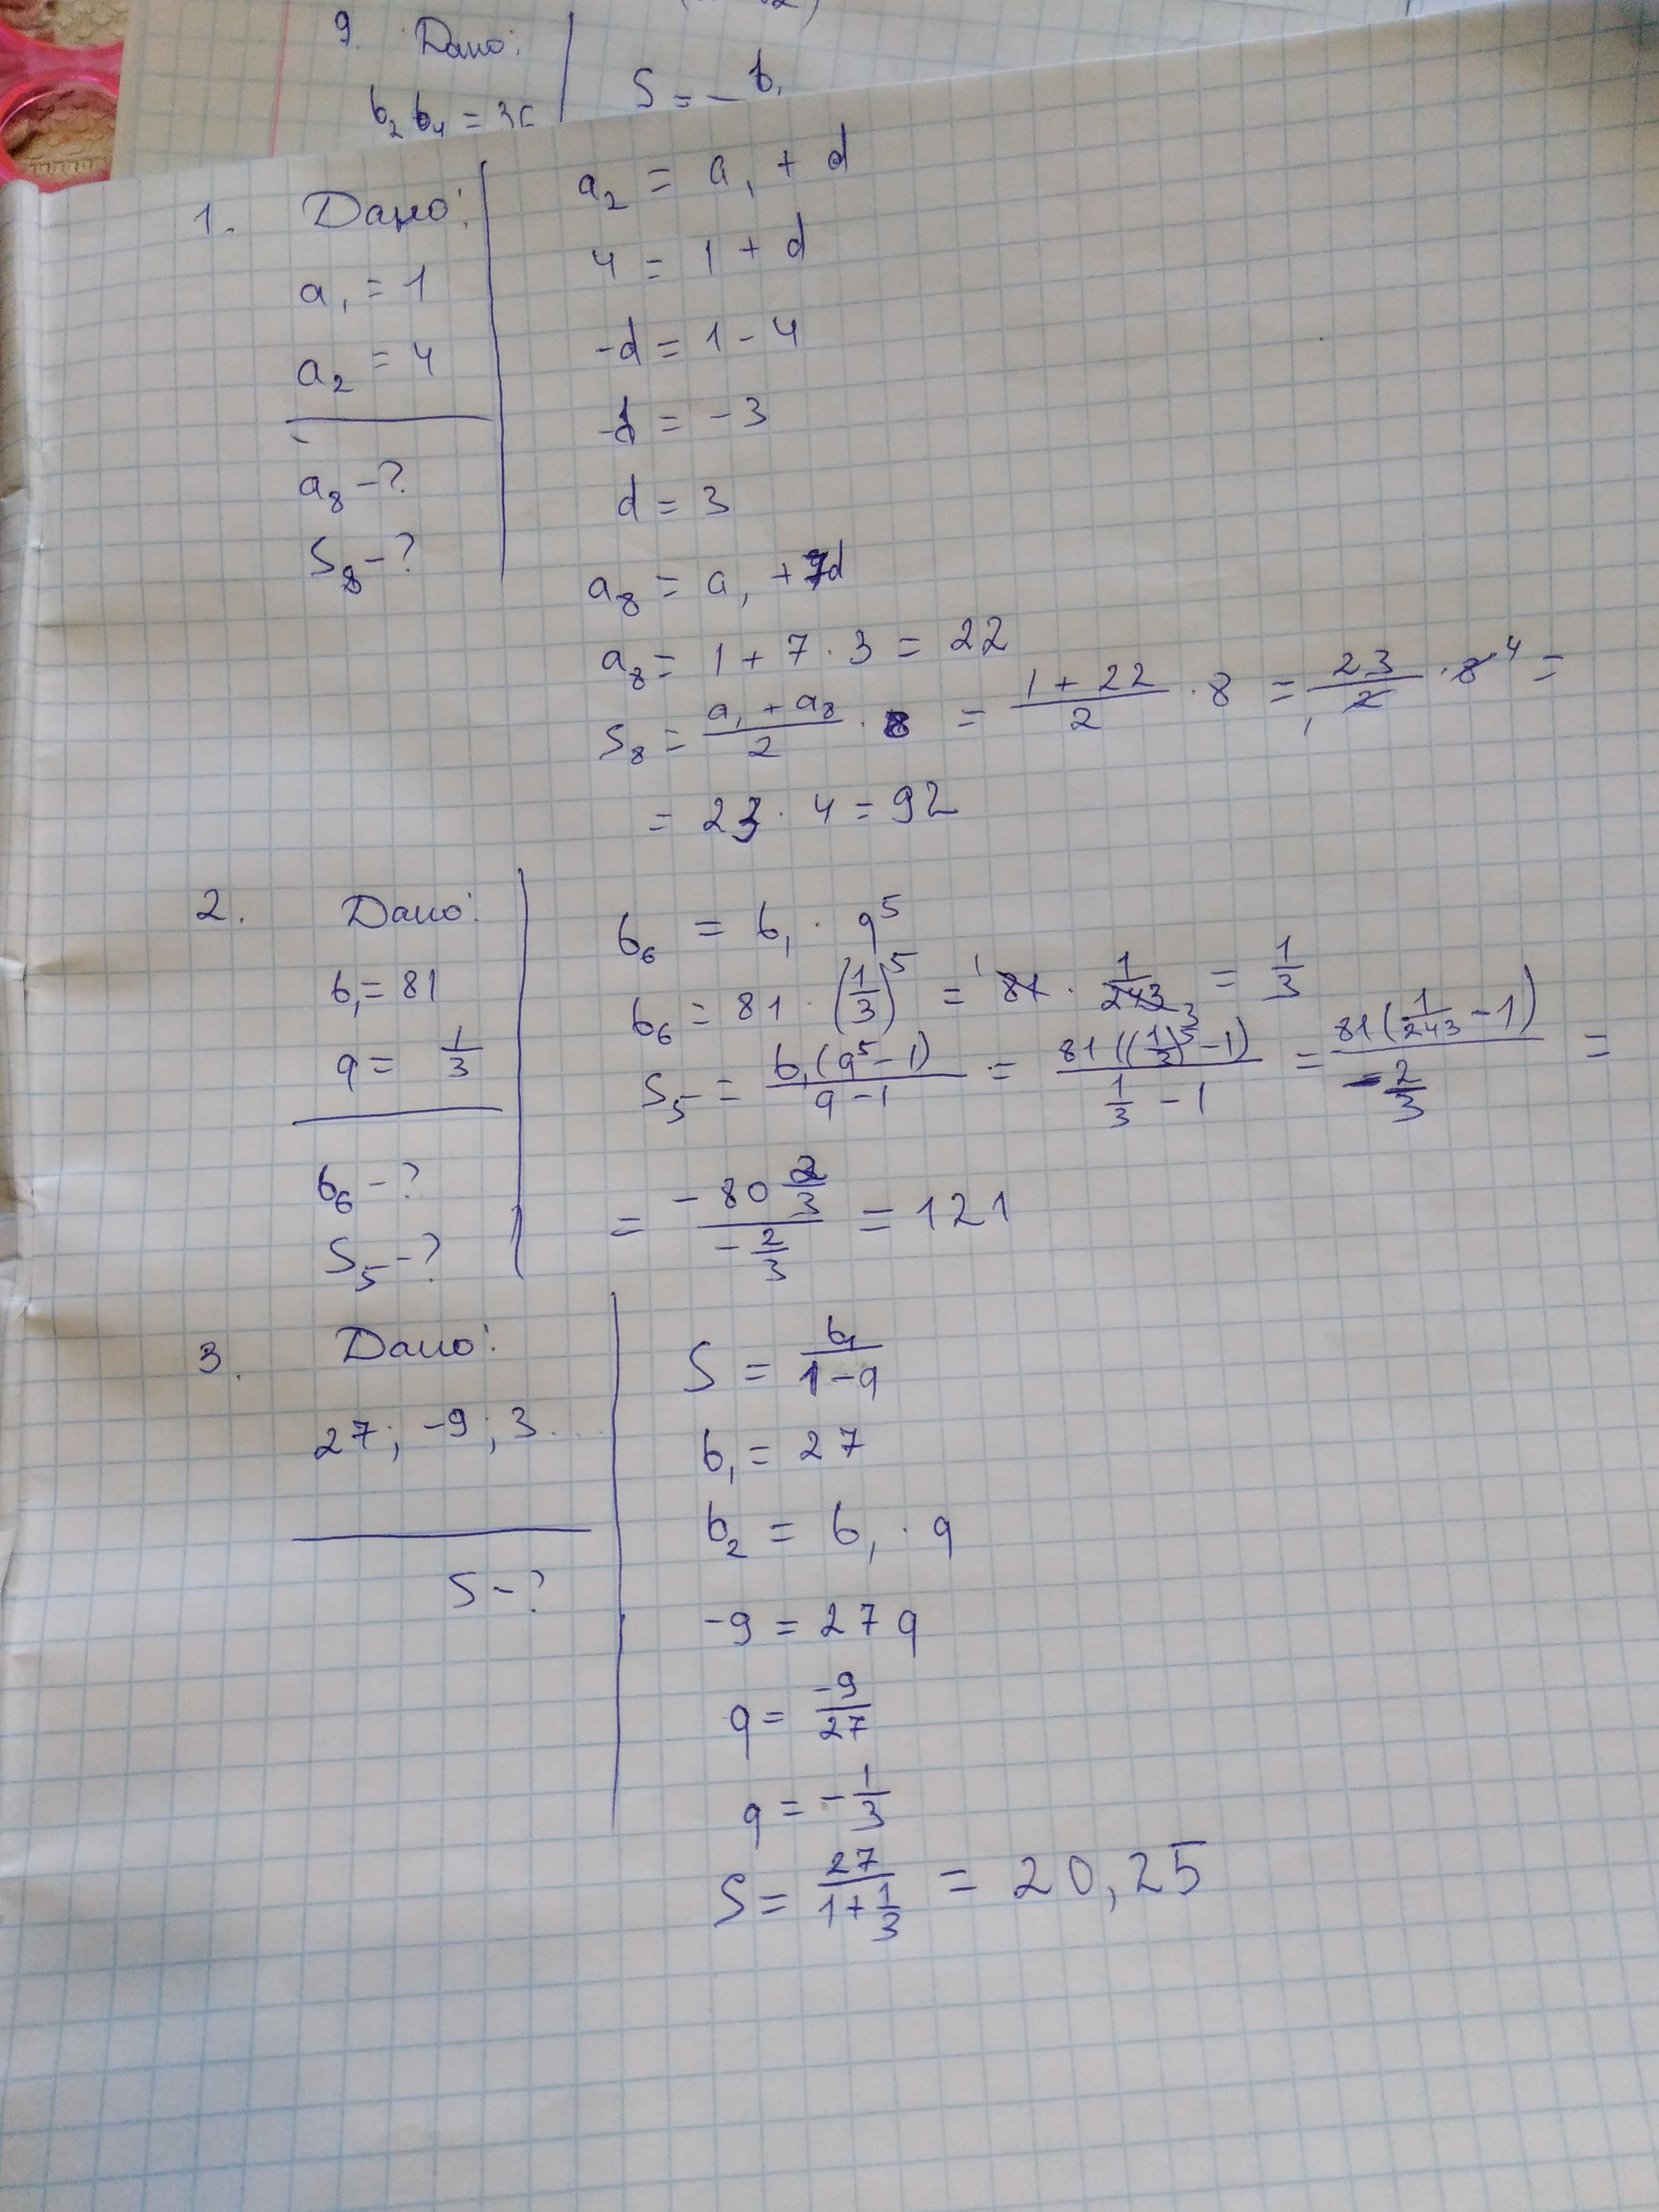 9. Дано:
b₂ b₄ = 36
S = b₁
1. Дано:
a₁ = 1
a₂ = 4
a₈ - ?
S₈ - ?
a₂ = a₁ + d
4 = 1 + d
-d = 1 - 4
-d = -3
d = 3
a₈ = a₁ + 7d
a₈ = 1 + 7 · 3 = 22
S₈ = (a₁ + a₈)/2 · 8 = (1 + 22)/2 · 8 = 23/2 · 8 =
= 23 · 4 = 92
2. Дано:
b₁ = 81
q = 1/3
b₆ - ?
S₅ - ?
b₆ = b₁ · q⁵
b₆ = 81 · (1/3)⁵ = 81 · 1/243 = 1/3
S₅ = b₁(q⁵ - 1)/(q - 1) = 81((1/3)⁵ - 1)/(1/3 - 1) = 81(1/243 - 1)/(-2/3) =
= (-80 2/3)/(-2/3) = 121
3. Дано:
27; -9; 3...
S - ?
S = b₁/(1 - q)
b₁ = 27
b₂ = b₁ · q
-9 = 27q
q = -9/27
q = -1/3
S = 27/(1 + 1/3) = 20,25